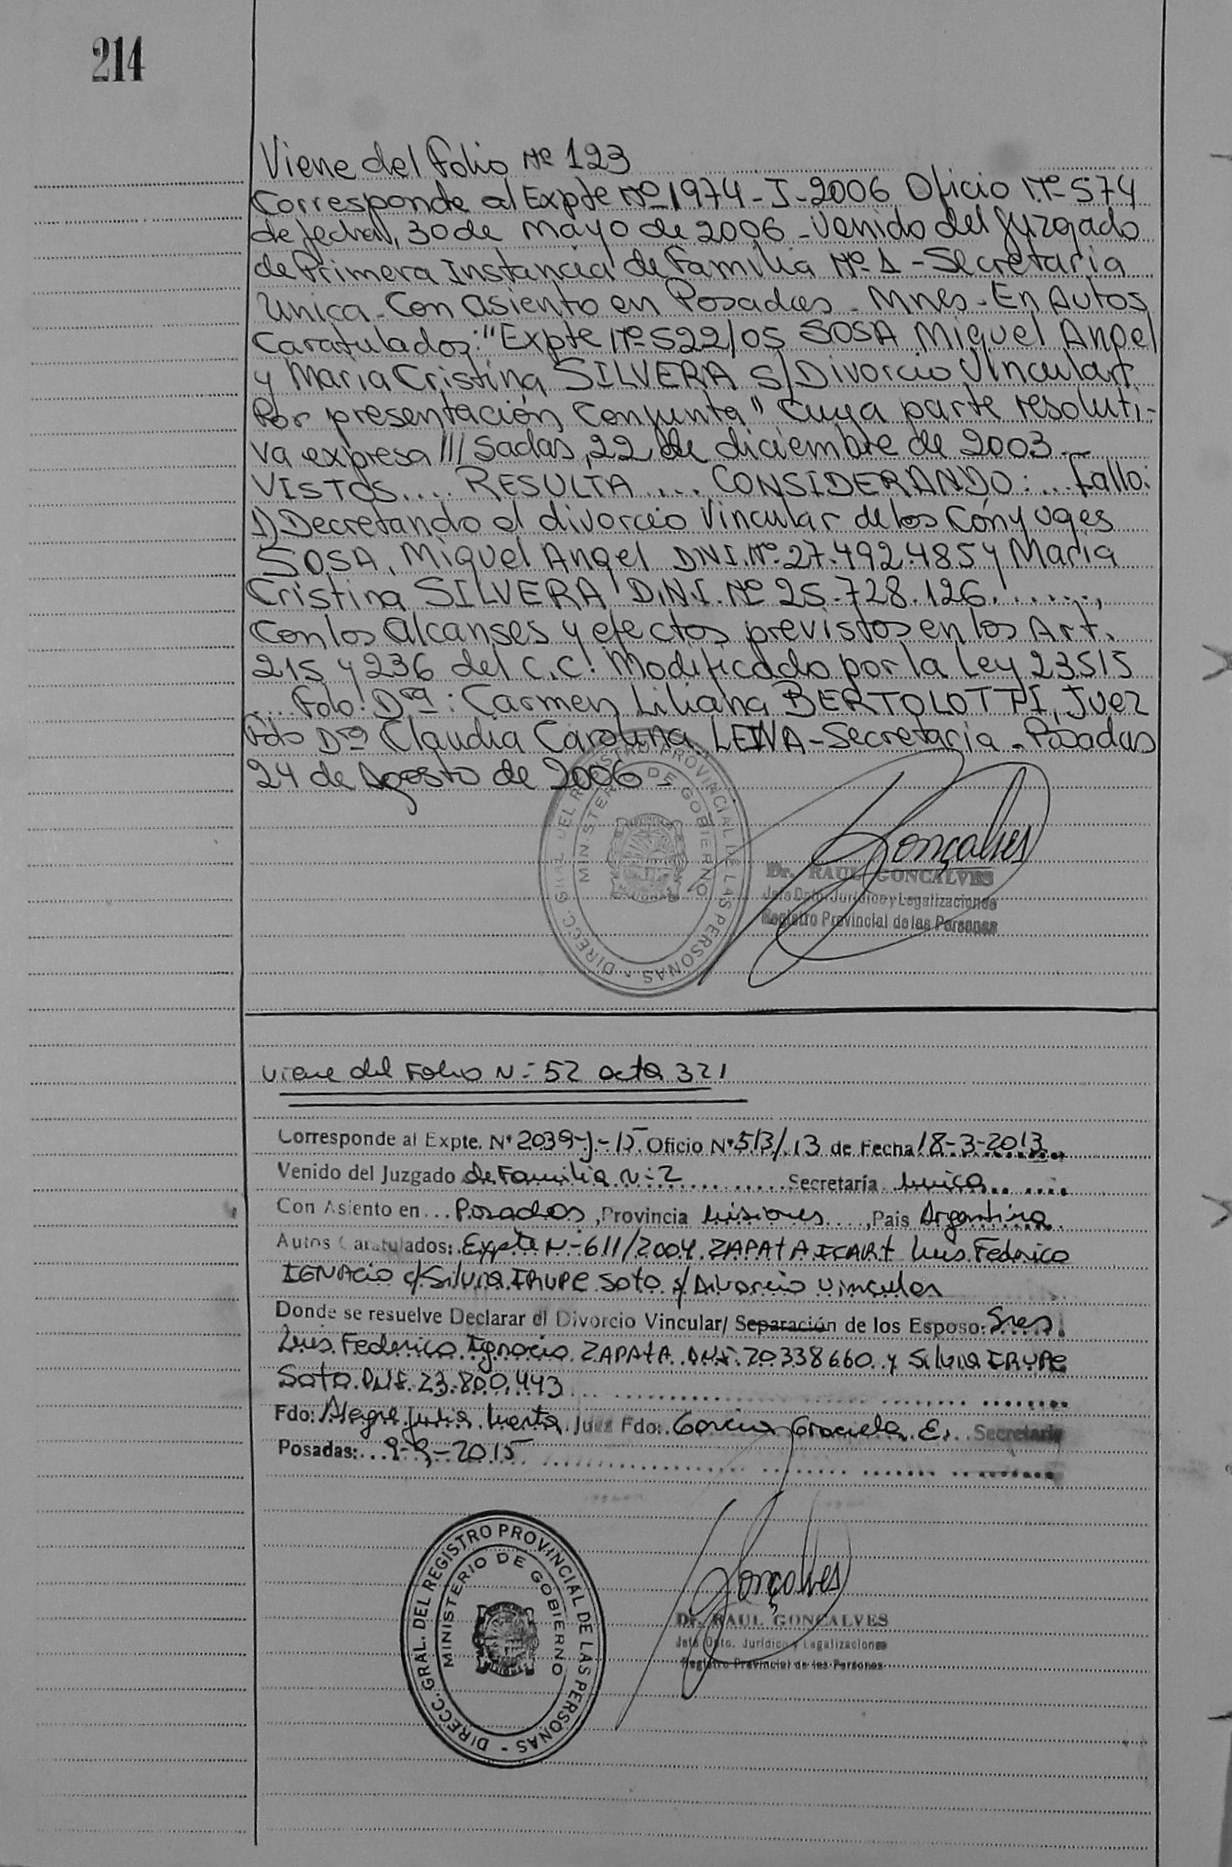 214
Viene del Folio Nº 123
Corresponde al Expte Nº 1974-J-2006 Oficio Nº 574
de fecha, 30 de Mayo de 2006 - Venido del Juzgado
de Primera Instancia de Familia Nº 1 - Secretaria
Unica - Con asiento en Posadas - Mnes - En Autos
Caratulados: "Expte Nº 522/05 SOSA Miguel Angel
y Maria Cristina SILVERA S/Divorcio Vincular
Por presentación Conjunta" cuya parte resoluti-
va expresa ///Sadas, 22 de diciembre de 2003 -
VISTOS.... RESULTA ... CONSIDERANDO: ... fallo:
1) Decretando el divorcio Vincular de los Cónyuges
SOSA, Miguel Angel DNI. Nº 27.492.485 y Maria
Cristina SILVERA D.N.I. Nº 25.728.126.......,
Con los alcanses y efectos previstos en los Art.
215 y 236 del C.C. Modificado por la Ley 23515
... Fdo: Drª: Carmen Liliana BERTOLOTTI, Juez
Fdo Drª Claudia Carolina LEIVA - Secretaria - Posadas
24 de Agosto de 2006 -
DIRECC. GRAL. DEL REGISTRO PROVINCIAL DE LAS PERSONAS -
MINISTERIO DE GOBIERNO
Gonçalves
Dr. RAUL GONCALVES
Jefe Dpto. Jurídico y Legalizaciones
Registro Provincial de las Personas
Viene del Folio N-: 52 acta 321
Corresponde al Expte. Nº 2039-J-15 Oficio Nº 513/13 de Fecha 18-3-2013
Venido del Juzgado de Familia N-: 2 Secretaría Unica
Con Asiento en Posadas, Provincia Misiones, País Argentina
Autos Caratulados: Expte N-: 611/2004 ZAPATA ICART Luis Federico
IGNACIO c/Silvia IRUPE Soto s/Divorcio Vincular
Donde se resuelve Declarar el Divorcio Vincular/ Separación de los Esposo: Sres
Luis Federico Ignacio ZAPATA DNI. 20338660 y Silvia IRUPE
Soto DNI. 23.800.443
Fdo: Alegre Julia Marta Juez Fdo: Garcia Graciela E. Secretaria
Posadas: 9-9-2015
DIRECC. GRAL. DEL REGISTRO PROVINCIAL DE LAS PERSONAS -
MINISTERIO DE GOBIERNO
Gonçalves
Dr. RAUL GONCALVES
Jefe Dpto. Jurídico y Legalizaciones
Registro Provincial de las Personas